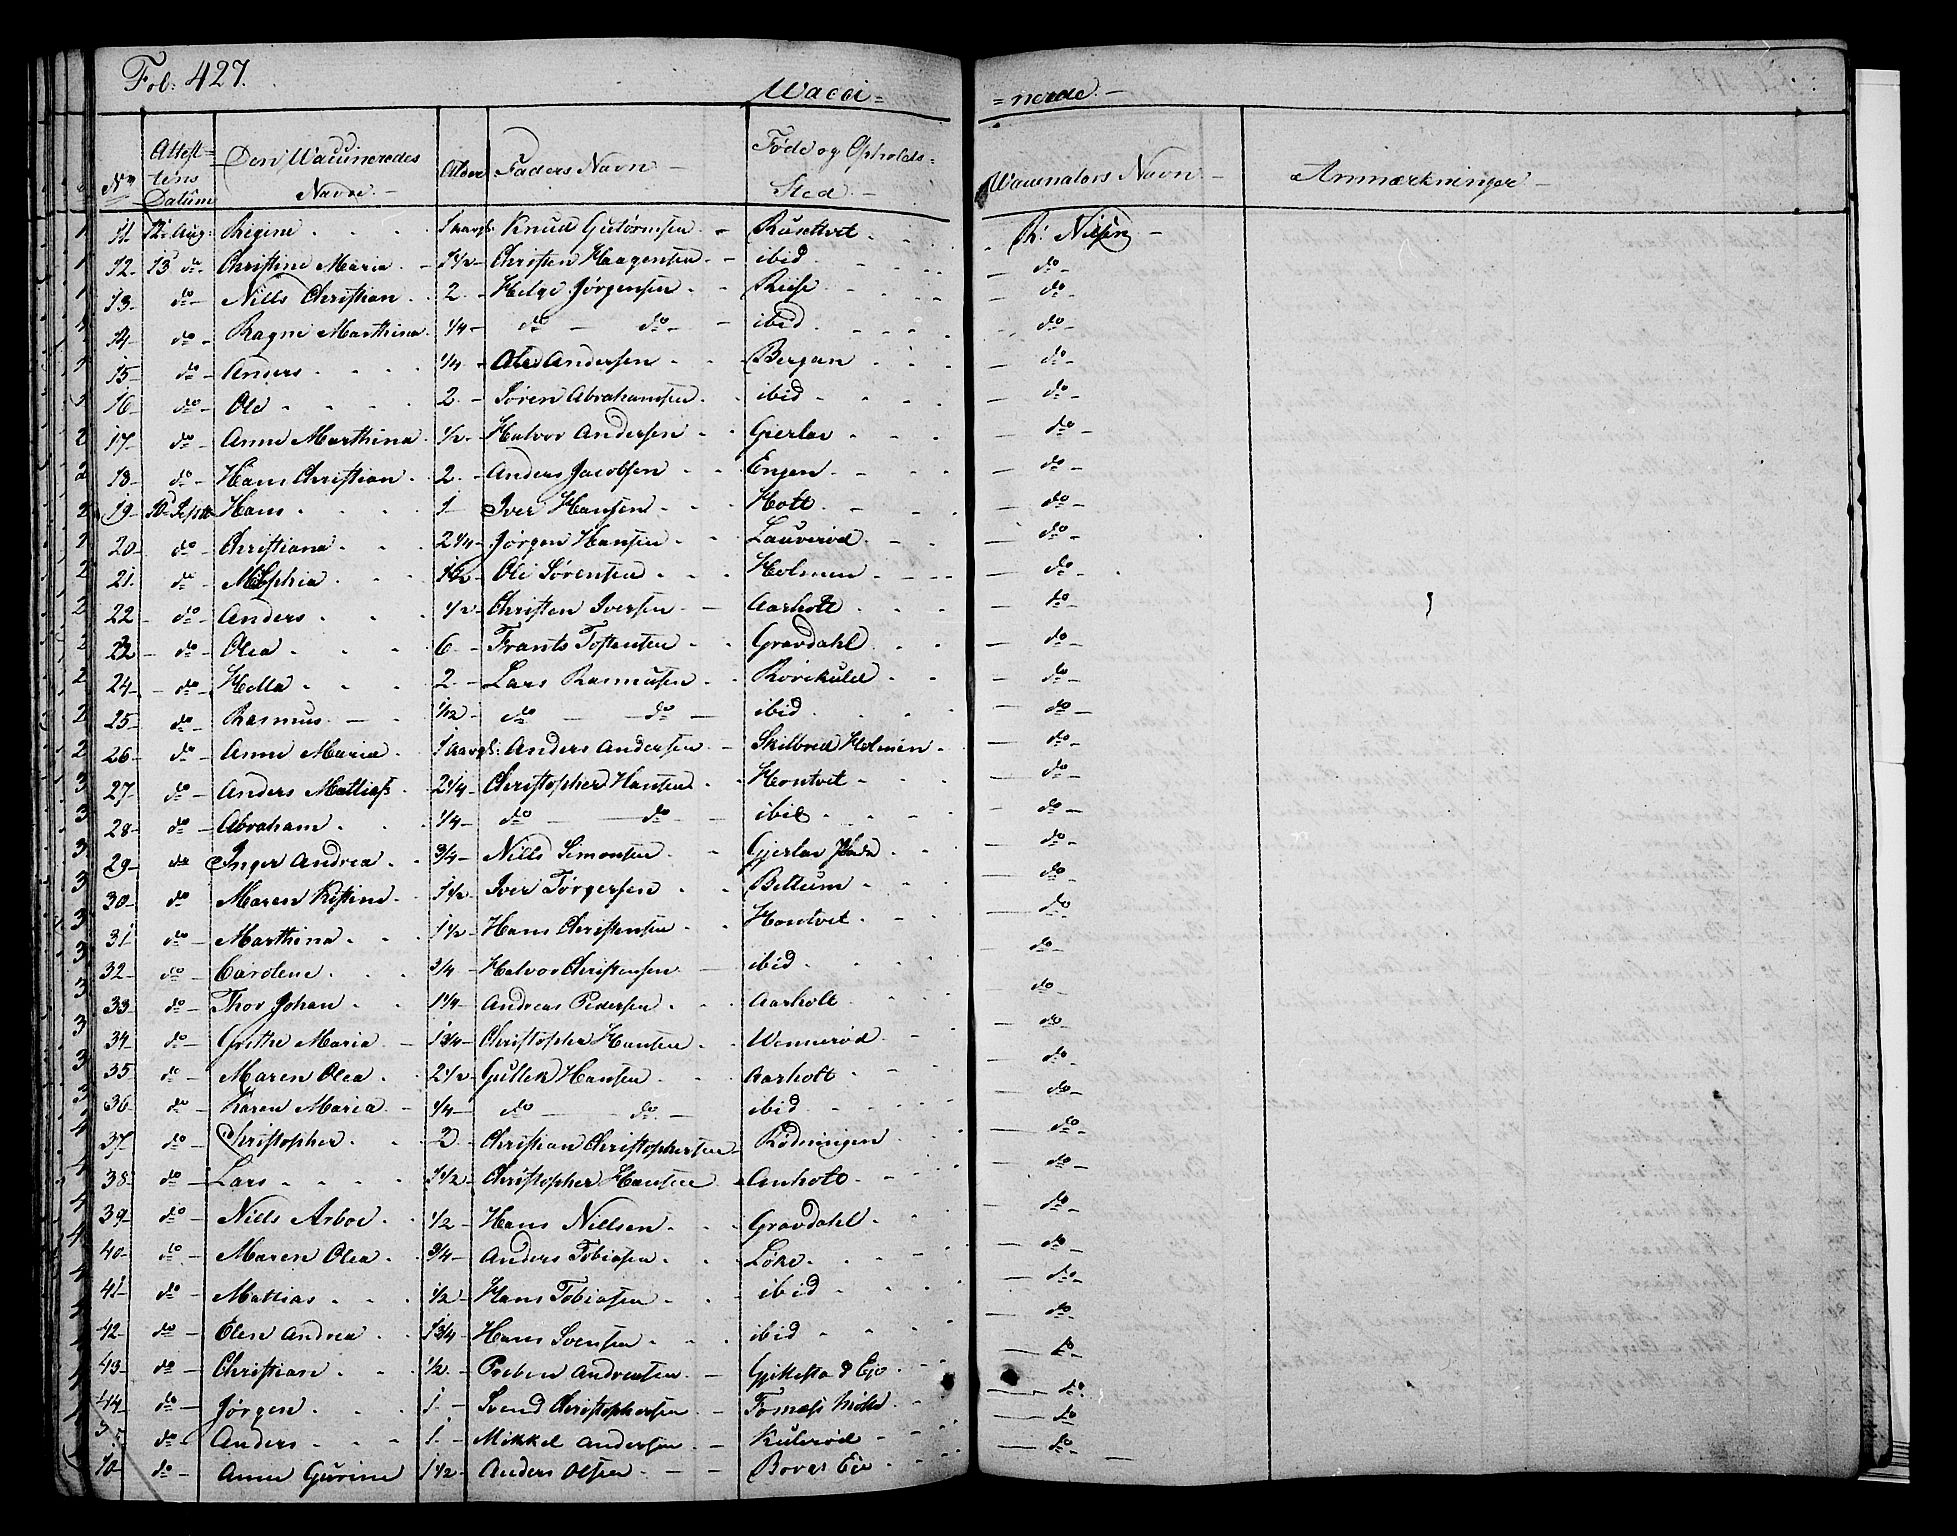 Fol: 427.
Wacci= =nerde.
No Attestens Datum Den Waccineredes Navne. Alder Faders Navn Føde og Opholds-Sted. Waccinators Navn Anmærkninger
11. 12. Aug: Regine 1 aargl: Knud Gutormsen Rusetvet R: Nilsen
12 13 do Christine Maria 1 1/2 Christen Haagensen ibid do
13 do Nills Christian 2 Helge Jørgensen Riise do
14 do Ragni Marthina 1/4 do do ibid do
15 do Anders 1/4 Ole Andersen Bergan do
16 do Ole 2 Søren Abrahamsen ibid do
17 do Anne Marthina 1/2 Halvor Andersen Gierlav do
18 do Hans Christian 2 Anders Jacobsen Engen do
19 10 Septb Hans 1 Iver Hansen Holt do
20 do Christiana 2 1/4 Jørgen Hansen Lauverød do
21 do Sophia 1 1/2 Ole Sørensen Holmen do
22 do Anders 1/2 Christen Iversen Aarholt do
22 do Olea 6 Frants Tostensen Gravdahl do
24 do Hella 2 Lars Rasmusen Rørikuld do
25 do Rasmus 1/2 do do ibid do
26 do Anne Maria 1 aargl: Anders Andersen Skilbred Holmen do
27 do Anders Mattias 2 1/4 Christopher Hansen Hontvet do
28 do Abraham 1/4 do do ibid do
29 do Inger Andrea 3/4 Nills Simonsen Gjerlav do
30 do Maren Kistine 1 1/2 Iver Törgersen Bettum do
31 do Marthina 1 1/2 Hans Christensen Hontvet do
32 do Carolene 3/4 Halvor Christensen ibid do
33 do Thor Johan 1 1/4 Andreas Pedersen Aarholt do
34 do Grethe Maria 1 3/4 Christopher Hansen Wennerød do
35 do Maren Olea 2 1/2 Gullek Hansen Aarholt do
36 do Karen Maria 1/4 do do ibid do
37 do Christopher 2 Christian Christophersen Rødningen do
38 do Lars 1 1/2 Christopher Hansen Anholt do
39 do Nills Arboe 1/2 Hans Nillsen Gravdahl do
40 do Maren Olea 3/4 Anders Tobiasen Løke do
41 do Mattias 1/2 Hans Tobiasen ibid do
42 do Elen Andrea 1 3/4 Hans Svensen ibid do
43 do Christian 1/2 Preben Andreasen Gjellestad Eje do
44 do Jørgen 1 Svend Christophersen do
do Anders 1 Mikkel Andersen Kulerød do
10 do Anne Gurine 1 1/2 Anders Olsen Borge Eje